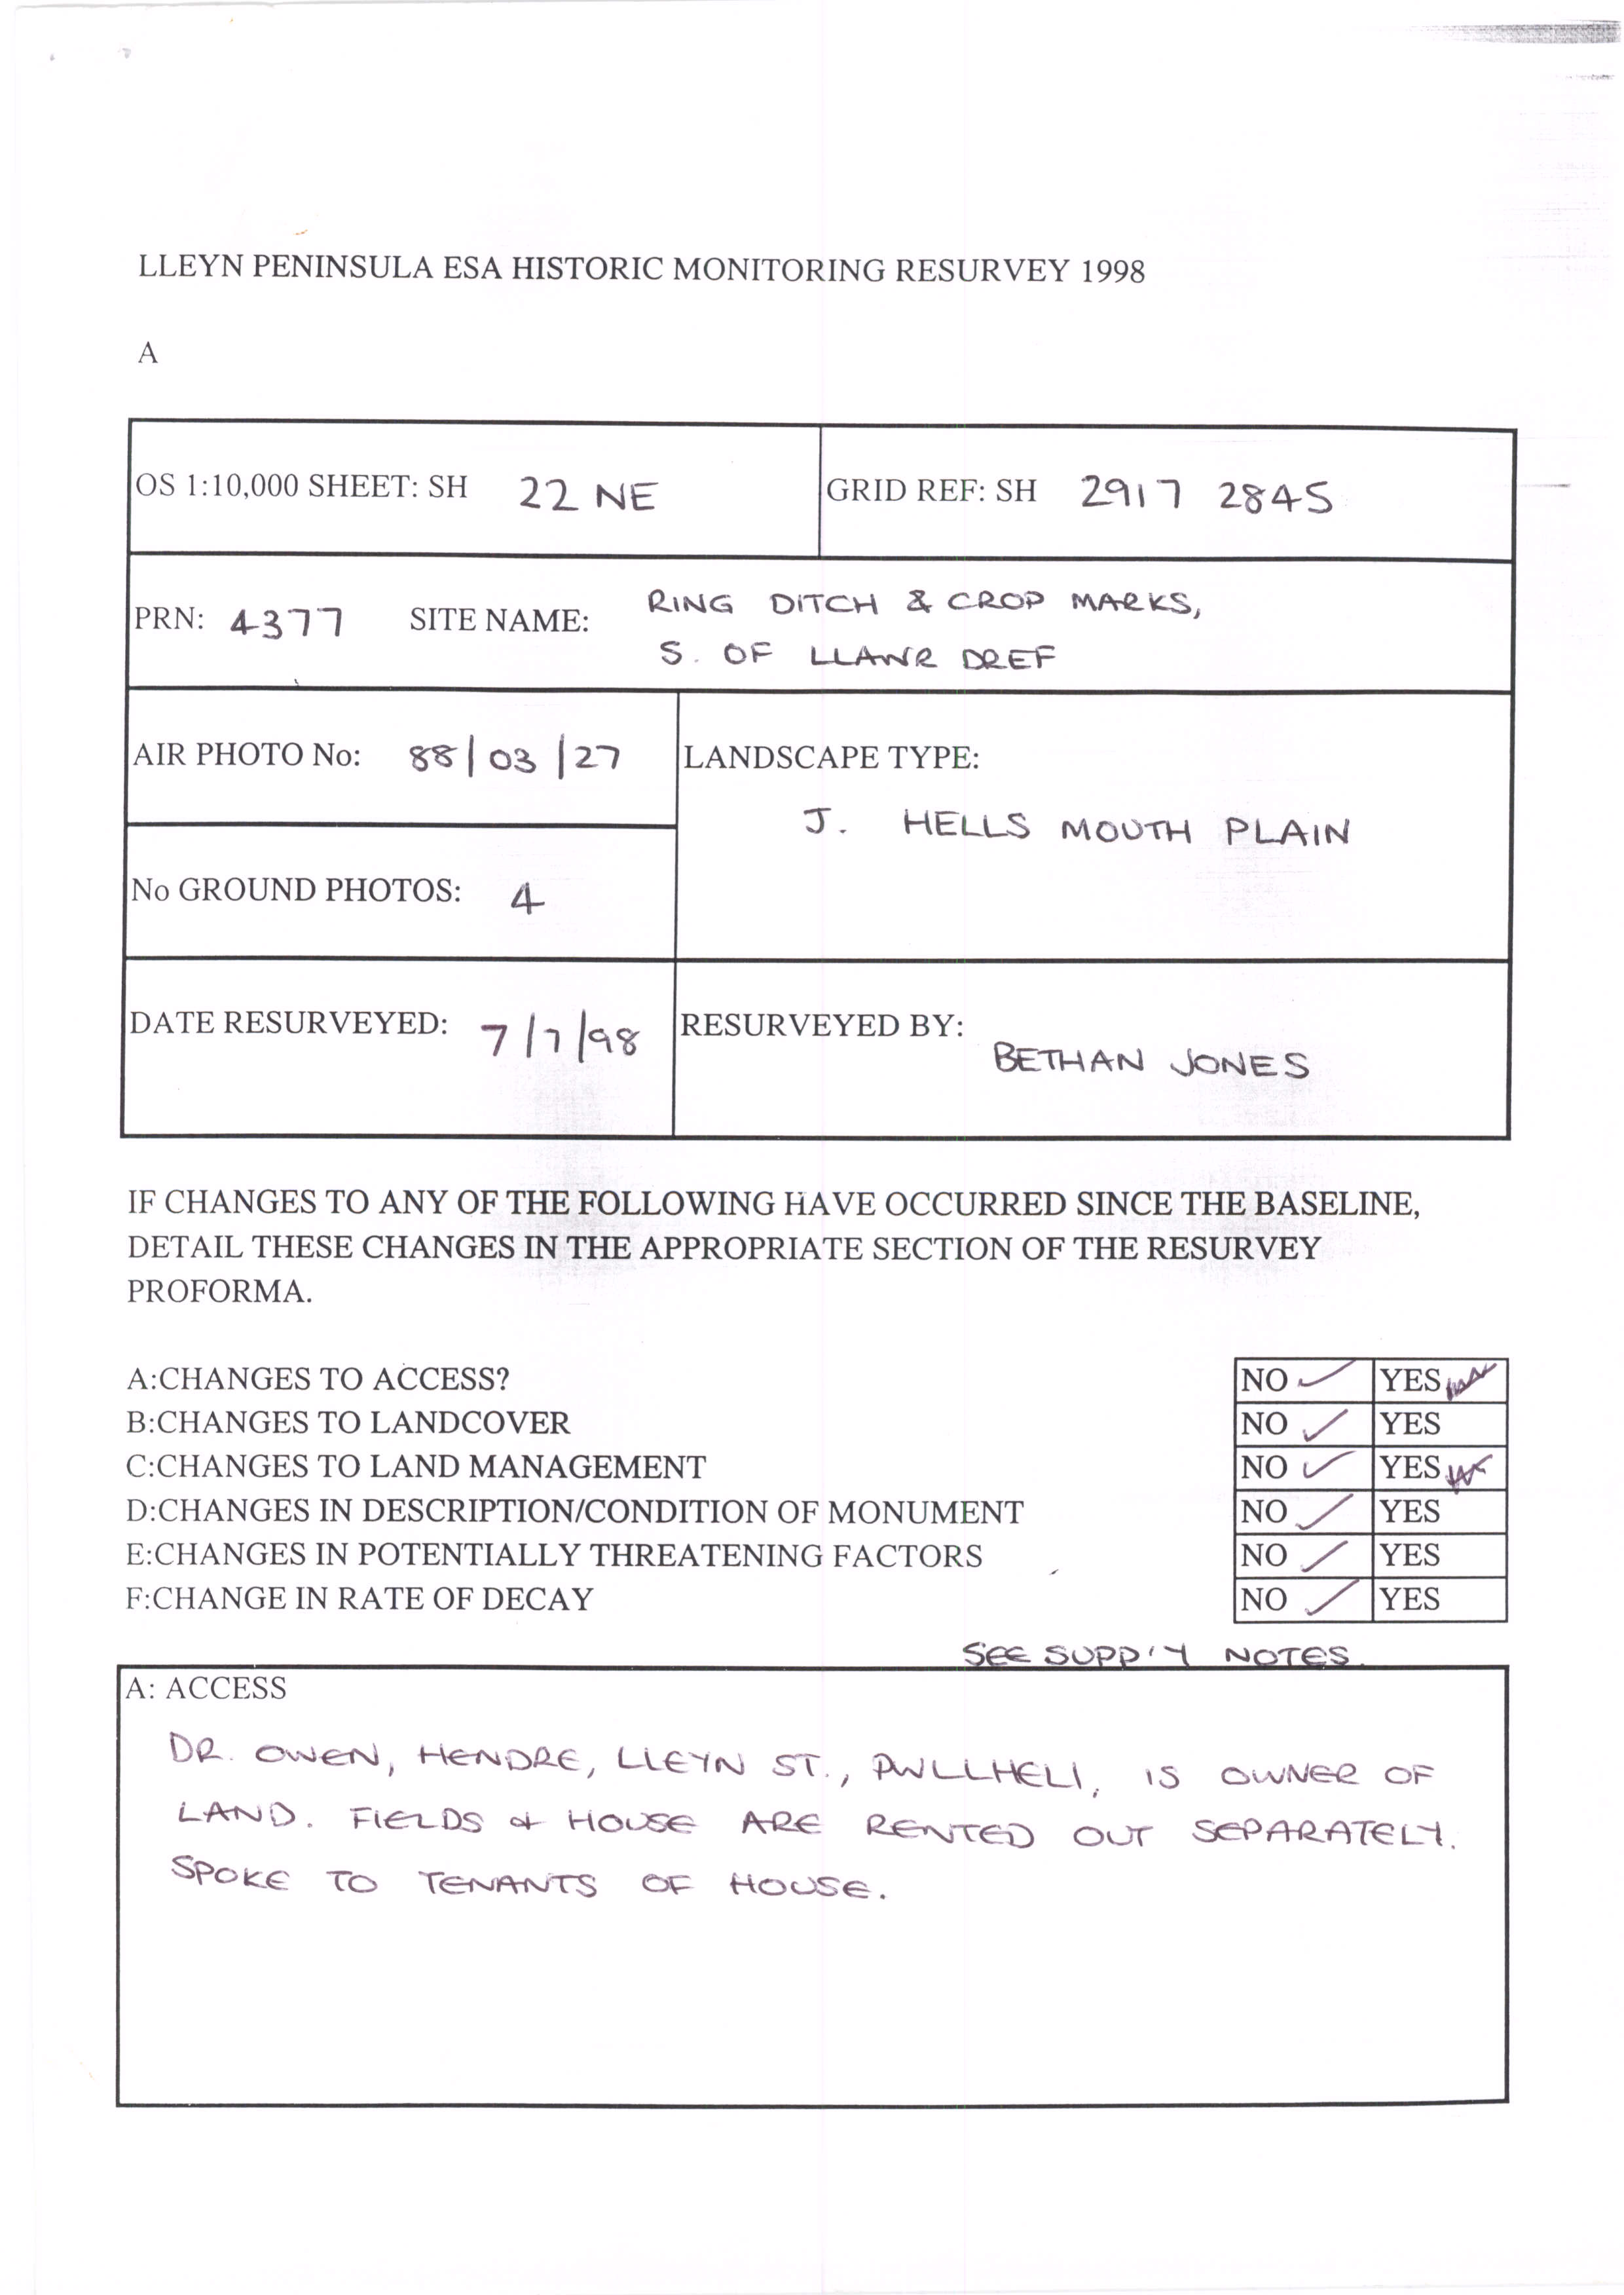 LLEYN PENINSULA ESA HISTORIC MONITORING RESURVEY 1998
A
OS 1:10,000 SHEET: SH 22 NE
GRID REF: SH 2917 2845
PRN: 4377 SITE NAME: RING DITCH & CROP MARKS,
S. OF LLAWR DREF
AIR PHOTO No: 88/03/27
LANDSCAPE TYPE:
J. HELLS MOUTH PLAIN
No GROUND PHOTOS: 4
DATE RESURVEYED: 7/7/98
RESURVEYED BY:
BETHAN JONES
IF CHANGES TO ANY OF THE FOLLOWING HAVE OCCURRED SINCE THE BASELINE,
DETAIL THESE CHANGES IN THE APPROPRIATE SECTION OF THE RESURVEY
PROFORMA.
A:CHANGES TO ACCESS? NO ✓ YES
B:CHANGES TO LANDCOVER NO ✓ YES
C:CHANGES TO LAND MANAGEMENT NO ✓ YES
D:CHANGES IN DESCRIPTION/CONDITION OF MONUMENT NO ✓ YES
E:CHANGES IN POTENTIALLY THREATENING FACTORS NO ✓ YES
F:CHANGE IN RATE OF DECAY NO ✓ YES
SEE SUPP'Y NOTES
A: ACCESS
DR. OWEN, HENDRE, LLEYN ST., PWLLHELI, IS OWNER OF
LAND. FIELDS & HOUSE ARE RENTED OUT SEPARATELY.
SPOKE TO TENANTS OF HOUSE.